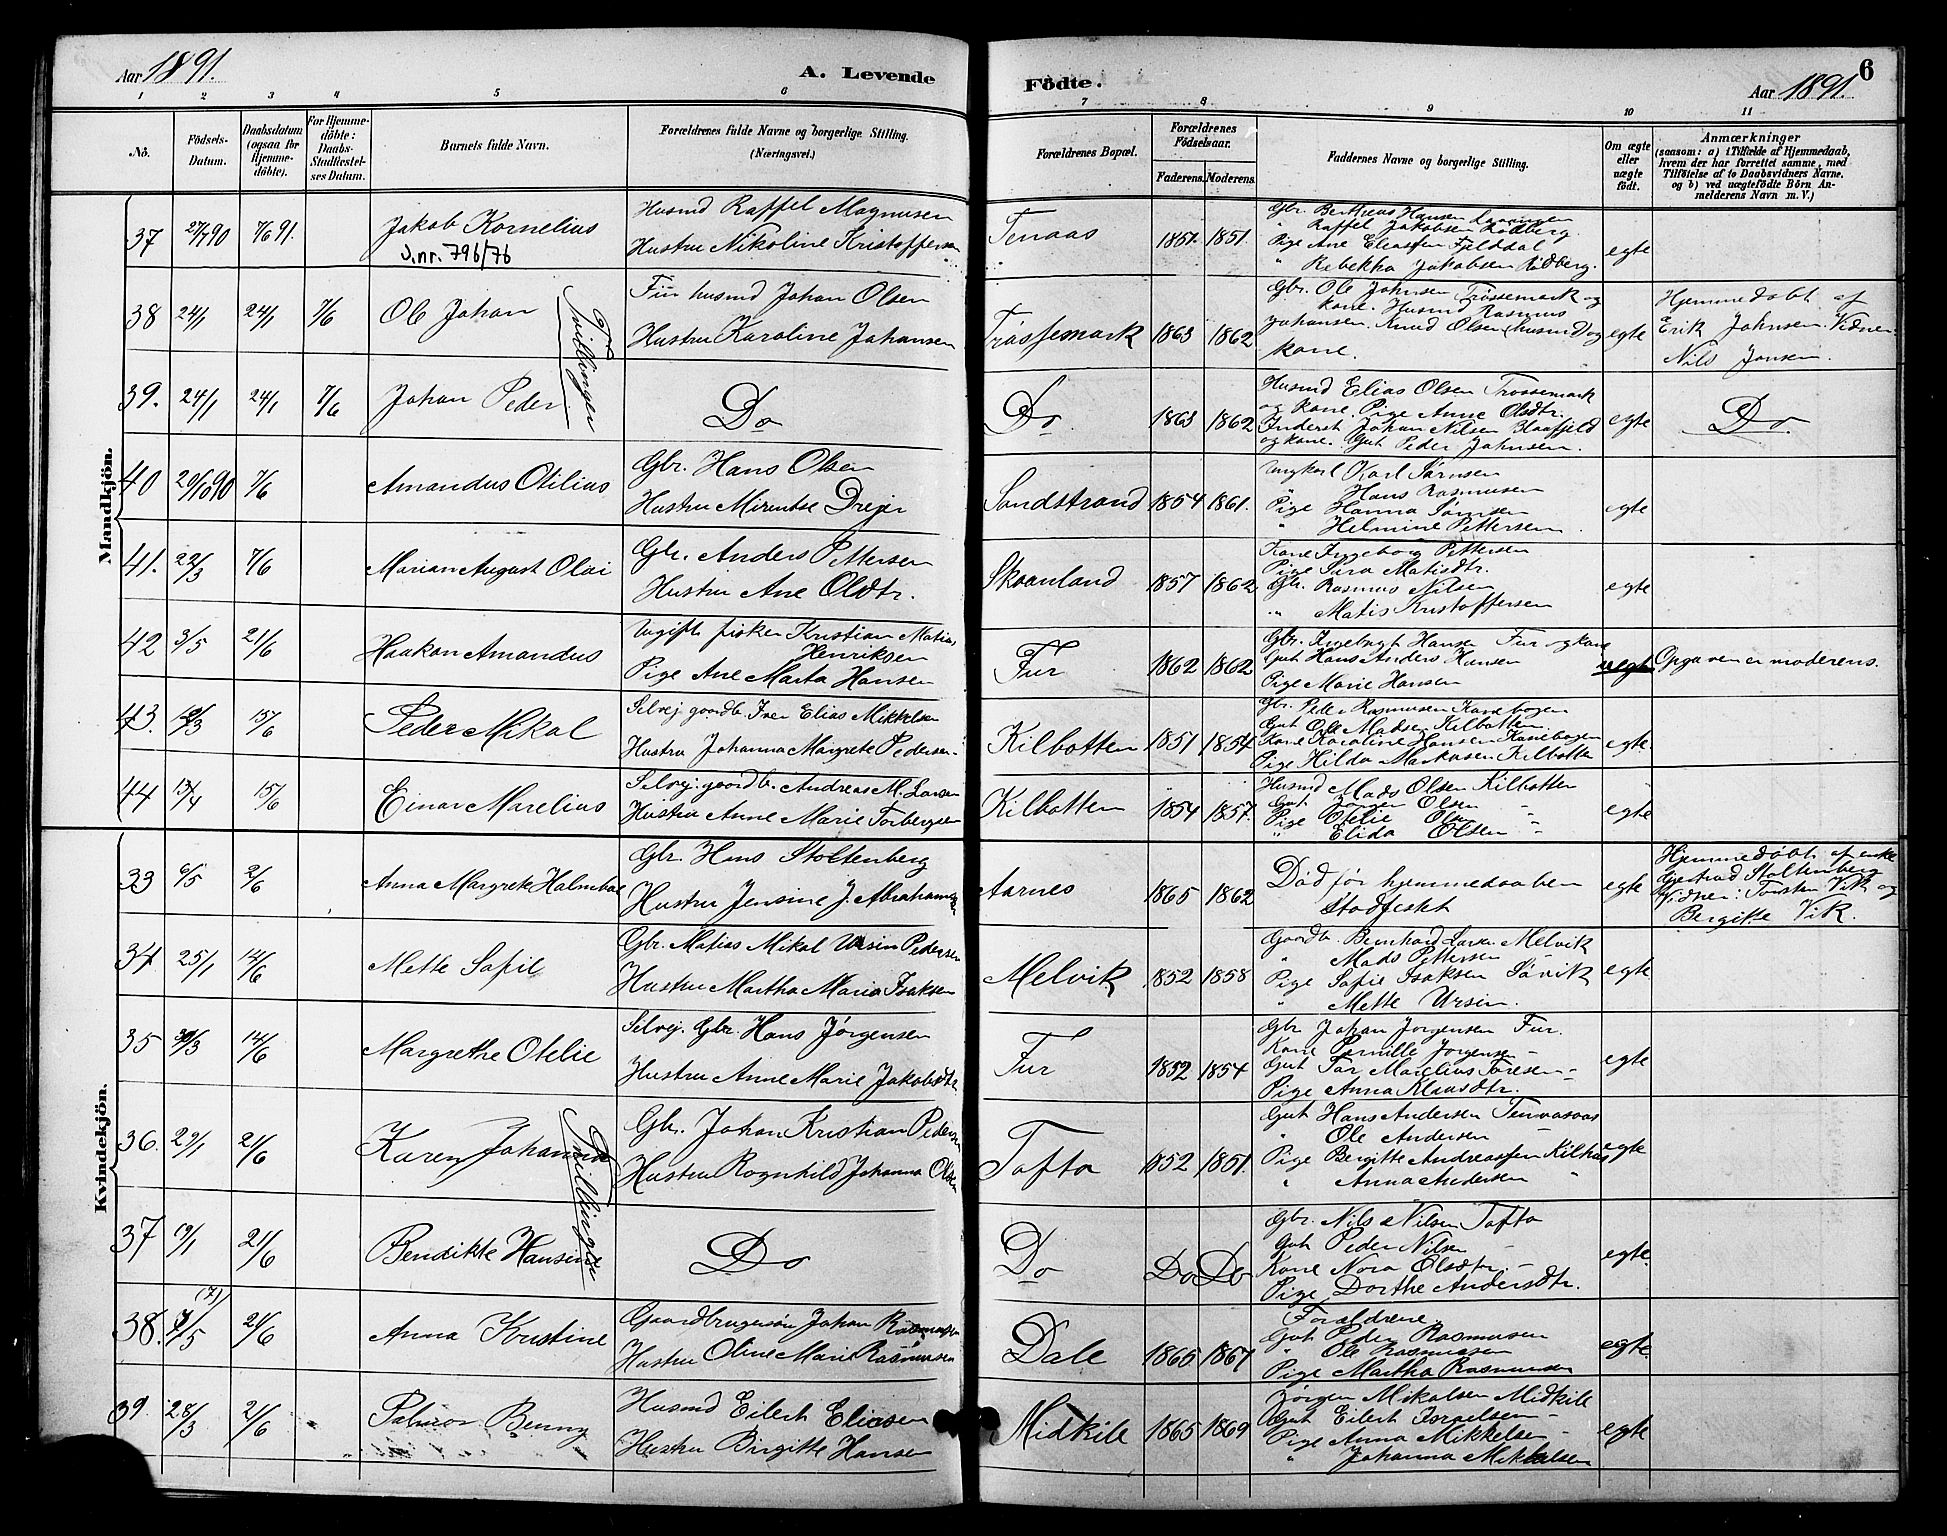 Aar 1891.
A. Levende
Födte.
6
Aar 1891.
1 2 3 4 5 6 7 8 9 10 11
No.
Födsels-Datum.
Daabsdatum (ogsaa for Hjemme-döbte).
For Hjemme-döbte: Daabs-Stadfæstel-ses Datum.
Barnets fulde Navn.
Forældrenes fulde Navne og borgerlige Stilling. (Næringsvei.)
Forældrenes Bopæl.
Forældrenes Födselsaar.
Faderens. Moderens.
Faddernes Navne og borgerlige Stilling.
Om ægte eller uægte födt.
Anmærkninger (saasom: a) i Tilfælde af Hjemmedaab, hvem der har forrettet samme, med Tilföielse af to Daabsvidners Navne. og b) ved uægtefödte Börn An-melderens Navn m. V.)
Mandkjön.
37 27/7 90 7/6 91. Jakob Kornelius
J.nr. 796/76
Husmd Raffel Magnusen
Hustru Nikoline Kristoffersen
Tenaas 1851. 1851.
Gbr. Berteus Hansen
" Raffel Jakobsen Rödberg.
Pige Ane Eliassen Fjelddal
" Rebekka Jakobsen Rödberg.
egte
38 24/1 24/1 7/6 Ole Johan
Tvillinger
husmd Johan Olsen
Hustru Karoline Johansen
Trossemark 1863 1862
Gbr. Ole Johnsen Trossemark og
kone. Husmd Rasmus
Johansen. Knud Olsen (husmd) og
kone.
egte
Hjemmedöbt af
Erik Johnsen. Vidner
Nils Jonsen.
39. 24/1 24/1 7/6 Johan Peder
Do
Do. 1863 1862
Husmd Elias Olsen Trossemark
og kone. Pige Anne Olsdtr.
Inderst Johan Nilsen Blaafjeld
og kone. Gut Peder Johnsen.
egte
Do.
40 20/10 90 7/6 Amandus Otilius
Gbr. Hans Olsen
Hustru Merentse Dreyer
Sandstrand 1854 1861.
Ungkarl Karl Sörnsen
" Hans Rasmusen
Pige Hanna Sörnsen
" Helmine Pettersen.
egte
41. 22/3 7/6 Marian August Olai
Gbr. Anders Pettersen
Hustru Ane Olsdtr.
Skaanland 1857 1862
Kone Ingeborg Pettersen
Pige Sara Matisdtr.
Gbr. Rasmus Nilsen
" Matis Kristoffersen
egte
42 3/5 21/6 Haakon Amandus
Ugift fisker Kristian Matias
Henriksen
Pige Ane Marta Hansen
Fur 1862 1862
Gbr. Ingebrigt Hansen Fur og kone
Gut Hans Anders Hansen
Pige Marie Hansen
uegte
Opgaven er moderens.
43. 12/3 15/6 Peder Mikal
Selvej. gaardb. Iver Elias Mikkelsen
Hustru Johanna Margrete Pedersen.
Kilbotten 1851 1854
Gbr. Peder Rasmusen Kanebogen
Gut Ole Madsen Kilbotten
Kone Karoline Hansen Kanebogen
Pige Hilda Markusen Kilbotten
egte.
44 13/4 15/6 Einar Marelius
Selvej. gaardb. Andreas M. Larsen
Hustru Anne Marie Torbergsen
Kilbotten 1854 1857.
Husmd Mads Olsen Kilbotten
Gut Jörgen Olsen "
Pige Otelie Olsen
" Elida Olsen "
egte
Kvindekjön.
33 6/5 2/6 Anna Margrete Holmboe
Gbr. Hans Stoltenberg
Hustru Jensine J. Abrahamsen
Aarnes 1865 1862
Död för hjemmedaaben
stadfestet
egte
Hjemmedöbt af enke
Gjertrud Stoltenberg
Vidner: Torsten Vik og
Bergitte Vik.
34. 25/1 14/6 Mette Sofie
Gbr. Matias Mikal Ursin Pedersen
Hustru Martha Maria Isaksen
Melvik 1852 1858
Gaardb. Bernhard Larsen Melvik
" Mads Pettersen "
Pige Sofie Isaksen Sörvik
" Mette Ursin.
egte
35 30/3 14/6 Margrethe Otelie
Selvej. Gbr. Hans Jörgensen
Hustru Anne Marie Jakobsdtr
Fur 1852 1854
Gbr Johan Jörgensen Fur.
Kone Pernille Jörgensen
Gut Tar Marelius Toresen
Pige Anna Klausdtr.
egte
36. 29/1 21/6 Karen Johanna
Tvillinger
Gbr. Johan Kristian Pedersen
Hustru Rognhild Johanna Olsen
Tofta 1852 1851.
Gut Hans Andersen
" Ole Andersen
Pige Bergitte Andreassen Kilhus
" Anna Andersen "
egte
37 19/1 21/6 Bendikte Hansine
Do
Do Do Do
Gbr. Nils Nilsen Tofta
Gut Peder Nilsen "
Kone Nora Olsdtr.
Pige Dorthe Andersdtr.
egte.
38. (7) 7/5 21/6 Anna Kristine
Gaardbrugersön Johan Rasmusen
Hustru Oline Marie Rasmusen
Dale 1865 1867
Forældrene
Gut Peder Rasmusen
" Ole Rasmusen
Pige Martha Rasmusen
egte.
39. 28/3 21/6 Palmar Benny
Husmd Eilert Eliasen
Hustru Birgitte Hansen
Midkile 1865 1869
Jörgen Mikalsen Midkile
Gut Eilert Israelsen
Pige Anna Mikkelsen
" Johanna Mikkelsen
egte